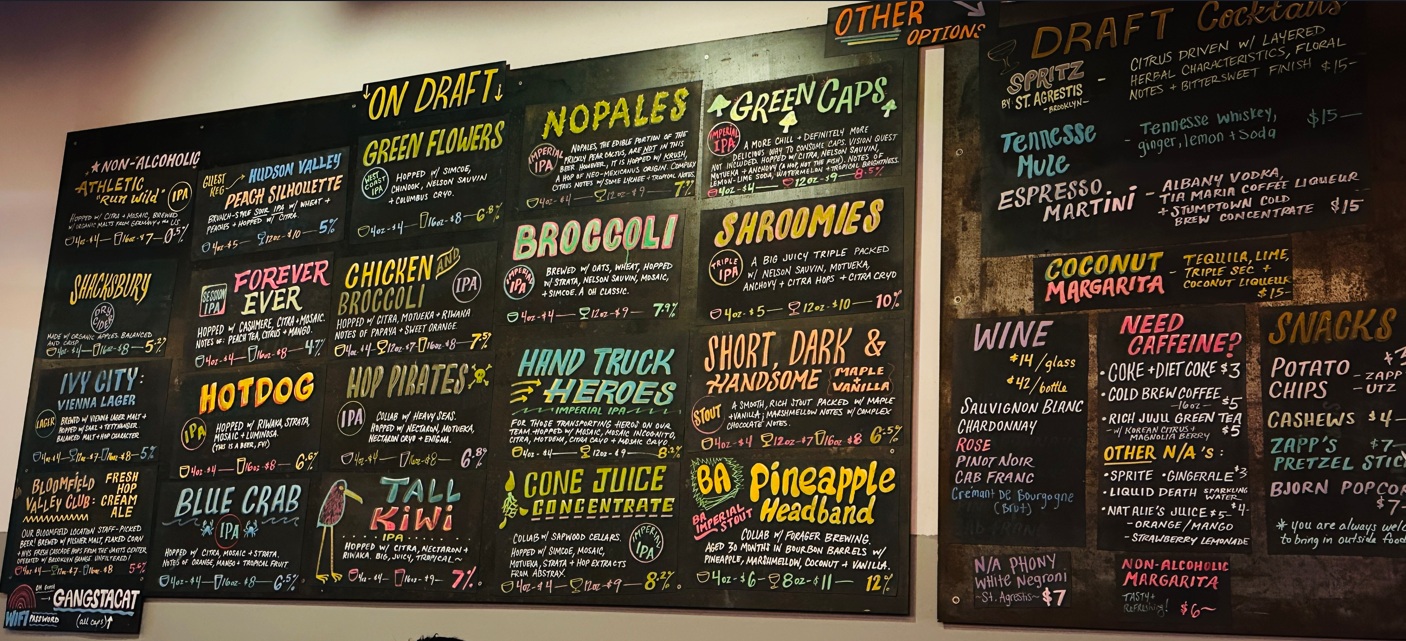 ↓ON DRAFT↓
OTHER
OPTIONS
★NON-ALCOHOLIC
ATHLETIC
"Run Wild"
IPA
HOPPED W/ CITRA + MOSAIC, BREWED
W/ ORGANIC MALTS FROM GERMANY + the US
4oz-$4—16oz-$7—0.5%
SHACKSBURY
DRY
CIDER
MADE W/ ORGANIC APPLES. BALANCED
AND CRISP.
4oz-$4—16oz-$8—5.2%
IVY CITY:
VIENNA LAGER
LAGER
BREWED W/ VIENNA LAGER MALT +
HOPPED W/ SAAZ + TETTNANGER
BALANCED MALT + HOP CHARACTER.
5%
BLOOMFIELD
VALLEY CLUB:
FRESH
HOP
CREAM
ALE
OUR BLOOMFIELD LOCATION STAFF-PICKED
BEER! BREWED W/ PILSNER MALT, FLAKED CORN
WIFI
PASSWORD
GANGSTACAT
(all caps)↑
GUEST
KEG
HUDSON VALLEY
PEACH SILHOUETTE
BRUNCH-STYLE SOUR IPA W/ WHEAT +
PEACHES + HOPPED W/ CITRA.
4oz-$5—12oz-$10—5%
SESSION
IPA
FOREVER
EVER
HOPPED W/ CASHMERE, CITRA + MOSAIC.
NOTES OF: PEACH TEA, CITRUS + MANGO.
4oz-$4—16oz-$8—4.7%
HOTDOG
IPA
HOPPED W/ RIWAKA, STRATA,
MOSAIC + LUMINOSA.
(THIS IS A BEER, FYI)
4oz-$4—16oz-$8—6.5%
BLUE CRAB
IPA
HOPPED W/ CITRA, MOSAIC + STRATA.
NOTES OF ORANGE, MANGO + TROPICAL FRUIT
4oz-$4—16oz-$8—6.5%
GREEN FLOWERS
WEST
COAST
IPA
HOPPED W/ SIMCOE,
CHINOOK, NELSON SAUVIN
+ COLUMBUS CRYO.
4oz-$4—16oz-$8—6.8%
CHICKEN AND
BROCCOLI
IPA
HOPPED W/ CITRA, MOTUEKA + RIWAKA
NOTES OF PAPAYA + SWEET ORANGE
4oz-$4—12oz-$7—16oz-$8—7.5%
HOP PIRATES
IPA
COLLAB W/ HEAVY SEAS.
HOPPED W/ NECTARON, MOTUEKA,
NECTARON CRYO + ENIGMA.
4oz-$4—16oz-$8—6.8%
TALL
KIWI
IPA
HOPPED W/ CITRA, NECTARON +
RIWAKA. BIG, JUICY, TROPICAL.
4oz-$4—16oz-$9—7%
NOPALES
IMPERIAL
IPA
NOPALES, THE EDIBLE PORTION OF THE
PRICKLY PEAR CACTUS, ARE NOT IN THIS
BEER. HOWEVER, IT IS HOPPED W/ KRUSH,
A HOP OF NEO-MEXICANUS ORIGIN. COMPLEX
CITRUS NOTES W/ SOME LYCHEE + TROPICAL NOTES.
4oz-$4—12oz-$9—7%
BROCCOLI
IMPERIAL
IPA
BREWED W/ OATS, WHEAT, HOPPED
W/ STRATA, NELSON SAUVIN, MOSAIC,
+ SIMCOE. A OH CLASSIC.
4oz-$4—12oz-$9—7.9%
HAND TRUCK
HEROES
IMPERIAL IPA
FOR THOSE TRANSPORTING HEROS ON OUR
TEAM. HOPPED W/ MOSAIC, MOSAIC INCOGNITO,
CITRA, MOTUEKA, CITRA CRYO + MOSAIC CRYO
4oz-$4—12oz-$9—8.2%
CONE JUICE
CONCENTRATE
IMPERIAL
IPA
COLLAB W/ SAPWOOD CELLARS.
HOPPED W/ SIMCOE, MOSAIC,
MOTUEKA, STRATA + HOP EXTRACTS
FROM ABSTRAX.
4oz-$4—12oz-$9—8.2%
GREEN CAPS
IMPERIAL
IPA
A MORE CHILL + DEFINITELY MORE
DELICIOUS WAY TO CONSUME CAPS. VISION QUEST
NOT INCLUDED. HOPPED W/ CITRA, NELSON SAUVIN,
MOTUEKA + ANCHOVY (A HOP, NOT THE FISH). NOTES OF
LEMON-LIME SODA, WATERMELON + TROPICAL BRIGHTNESS.
4oz-$4—12oz-$9—8.5%
SHROOMIES
TRIPLE
IPA
A BIG JUICY TRIPLE PACKED
W/ NELSON SAUVIN, MOTUEKA,
ANCHOVY + CITRA HOPS + CITRA CRYO
4oz-$5—12oz-$10—10%
SHORT, DARK &
HANDSOME
MAPLE
VANILLA
STOUT
A SMOOTH, RICH STOUT PACKED W/ MAPLE
+ VANILLA; MARSHMELLOW NOTES W/ COMPLEX
CHOCOLATE NOTES.
4oz-$4 12oz-$7 16oz-$8 6.5%
BA
BA
IMPERIAL
STOUT
Pineapple
Headband
COLLAB W/ FORAGER BREWING.
AGED 30 MONTHS IN BOURBON BARRELS W/
PINEAPPLE, MARSHMELLOW, COCONUT + VANILLA.
4oz-$6—8oz-$11—12%
DRAFT Cocktails
SPRITZ
BY ST. AGRESTIS
-BROOKLYN-
- CITRUS DRIVEN W/ LAYERED
HERBAL CHARACTERISTICS, FLORAL
NOTES + BITTERSWEET FINISH $15-
Tennesse
Mule
- Tennesse Whiskey,
ginger, lemon + Soda
$15—
ESPRESSO
MARTINI
- ALBANY VODKA,
TIA MARIA COFFEE LIQUEUR
+ STUMPTOWN COLD
BREW CONCENTRATE $15
COCONUT
MARGARITA
- TEQUILA, LIME,
TRIPLE SEC +
COCONUT LIQUEUR
$15-
WINE
$14/glass
$42/bottle
SAUVIGNON BLANC
CHARDONNAY
ROSE
PINOT NOIR
CAB FRANC
Cremant DE Bourgogne
(Brut)
N/A PHONY
White Negroni
~St. Agrestis~ $7
NEED
CAFFEINE?
• COKE + DIET COKE $3
• COLD BREW COFFEE
-16oz- $5
• RICH JUJU GREEN TEA
-W/ KOREAN CITRUS + $5
MAGNOLIA BERRY
OTHER N/A's:
• SPRITE • GINGERALE $3
• LIQUID DEATH SPARKLING
WATER
$4-
• NATALIE'S JUICE $5-
-ORANGE/MANGO
-STRAWBERRY LEMONADE
NON-ALCOHOLIC
MARGARITA
TASTY +
REFRESHING!
$6~
SNACKS
POTATO
CHIPS
-ZAPP
-UTZ
CASHEWS $4-
ZAPP'S $7-
PRETZEL STIC
BJORN POPCO
$7-
* you are always welc
to bring in outside food